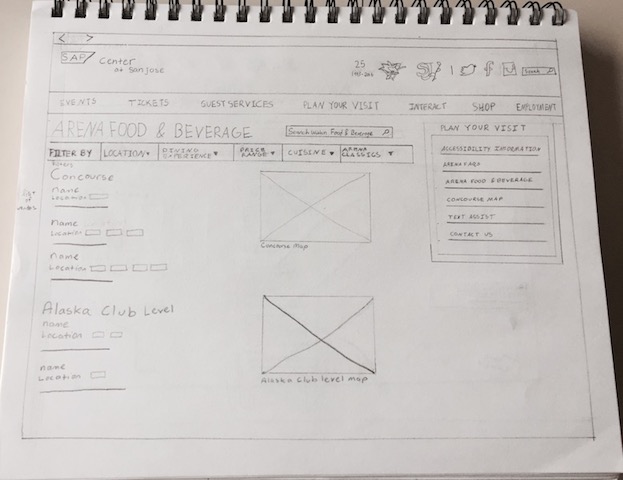 < >
SAP Center at San Jose
25
Search
EVENTS TICKETS GUEST SERVICES PLAN YOUR VISIT INTERACT SHOP EMPLOYMENT
ARENA FOOD & BEVERAGE
Food & Beverage
FILTER BY LOCATION▼ DINING EXPERIENCE▼ PRICE RANGE▼ CUISINE▼ ARENA CLASSICS▼
Concourse
name
Location
name
Location
name
Location
Concourse Map
Alaska Club Level
name
Location
name
Location
Alaska Club level map
PLAN YOUR VISIT
ACCESSIBILITY INFORMATION
ARENA FAQS
ARENA FOOD & BEVERAGE
CONCOURSE MAP
TEXT ASSIST
CONTACT US